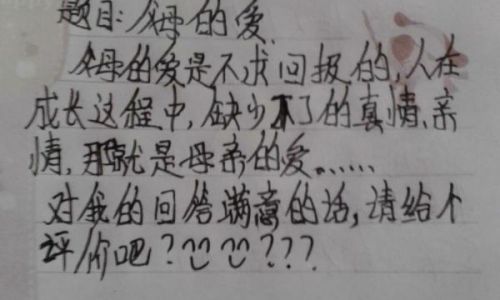 题目:父母的爱
父母的爱是不求回报的,人在
成长过程中,缺少不了的真情、亲
情,那就是母亲的爱。……
对我的回答满意的话,请给个
评价吧???